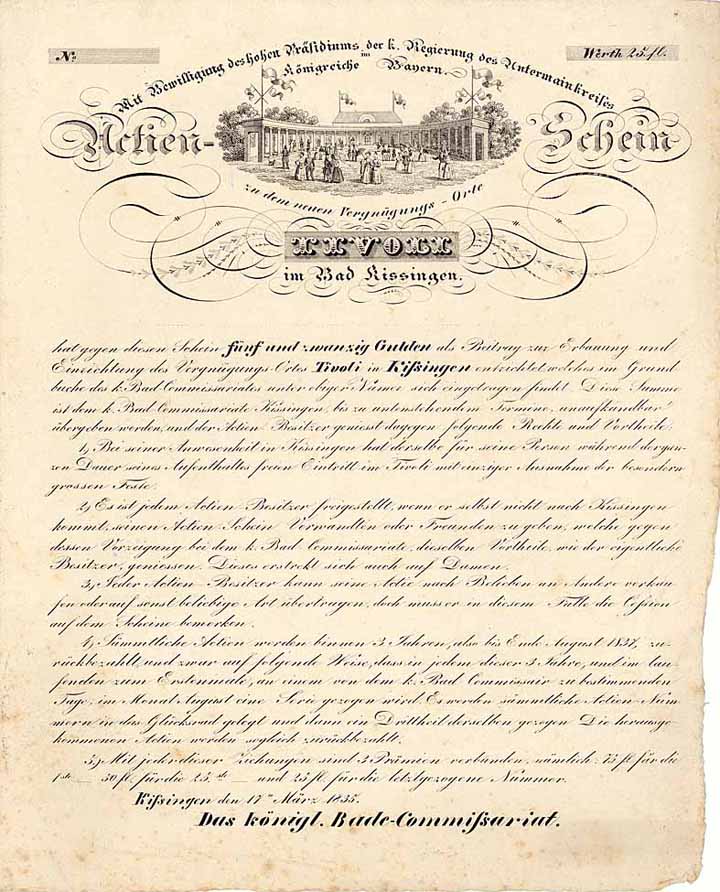 No.
Werth 25. fl.
Mit Bewilligung des hohen Präsidiums der k. Regierung des Untermainkreises
im
Königreiche Bayern.
Actien-Schein
zu dem neuen Vergnügungs-Orte
TIVOLI
im Bad Kissingen.
hat gegen diesen Schein fünf und zwanzig Gulden als Beitrag zur Erbauung und
Einrichtung des Vergnügungs-Ortes Tivoli in Kißsingen entrichtet, welches im Grund
buche des k. Bad-Commissariates unter obiger Numer sich eingetragen findet. Diese Summe
ist dem k. Bad-Commissariate Kissingen, bis zu untenstehendem Termine, unaufkandbar
übergeben werden, und der Actien-Besitzer geniesst dagegen folgende Rechte und Vortheile:
1, Bei seiner Anwesenheit in Kissingen hat derselbe für seine Person während der gan-
zen Dauer seines Aufenthaltes freien Eintritt im Tivoli mit einziger Ausnahme der besondern
grossen Feste.
2, Es ist jedem Actien-Besitzer freigestellt, wenn er selbst nicht nach Kissingen
kommt, seinen Actien-Schein Verwandten oder Freunden zu geben, welche gegen
dessen Vorzeigung bei dem k. Bad-Commissariate, dieselben Vortheile, wie der eigentliche
Besitzer, geniessen. Dieses erstrekt sich auch auf Damen.
3, Jeder Actien-Besitzer kann seine Actie nach Belieben an Andere verkau
fen oder auf sonst beliebige Art übertragen, doch muss er in diesem Falle die Cession
auf dem Scheine bemerken.
4, Sämmtliche Actien werden binnen 3 Jahren, also bis Ende August 1837, zu-
rückbezahlt und zwar auf folgende Weise, dass in jedem dieser 3 Jahre, und im lau-
fenden zum Erstenmale, an einem von dem k. Bad-Commissair zu bestimmenden
Tage, im Monat August eine Serie gezogen wird. Es werden sämmtliche Actien-Num
mern in das Glücksrad gelegt und dann ein Drittheil derselben gezogen. Die herausge-
kommenen Actien werden sogleich zurückbezahlt.
5, Mit jeder dieser Ziehungen sind 3 Prämien verbunden, nämlich: 75 fl für die
1ste — 50 fl. für die 25.ste — und 25 fl. für die letztgezogene Nummer.
Kißsingen den 17n März 1835.
Das königl. Bade-Commißsariat.